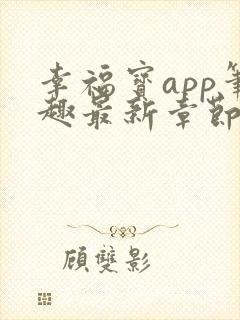 幸福寶app筆
趣最新章節
顧雙影